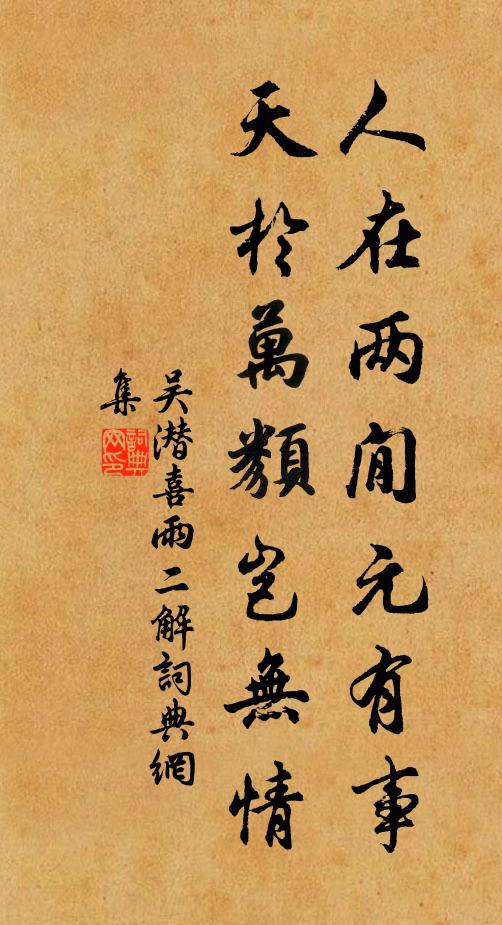 人在两間元有事
天於萬類豈無情
吴潜喜雨二解詞典網
集
詞典网印